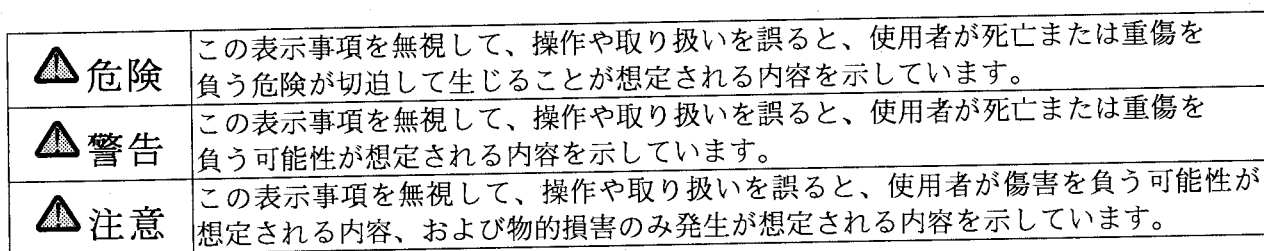 ⚠危険
この表示事項を無視して、操作や取り扱いを誤ると、使用者が死亡または重傷を
負う危険が切迫して生じることが想定される内容を示しています。
⚠警告
この表示事項を無視して、操作や取り扱いを誤ると、使用者が死亡または重傷を
負う可能性が想定される内容を示しています。
⚠注意
この表示事項を無視して、操作や取り扱いを誤ると、使用者が傷害を負う可能性が
想定される内容、および物的損害のみ発生が想定される内容を示しています。